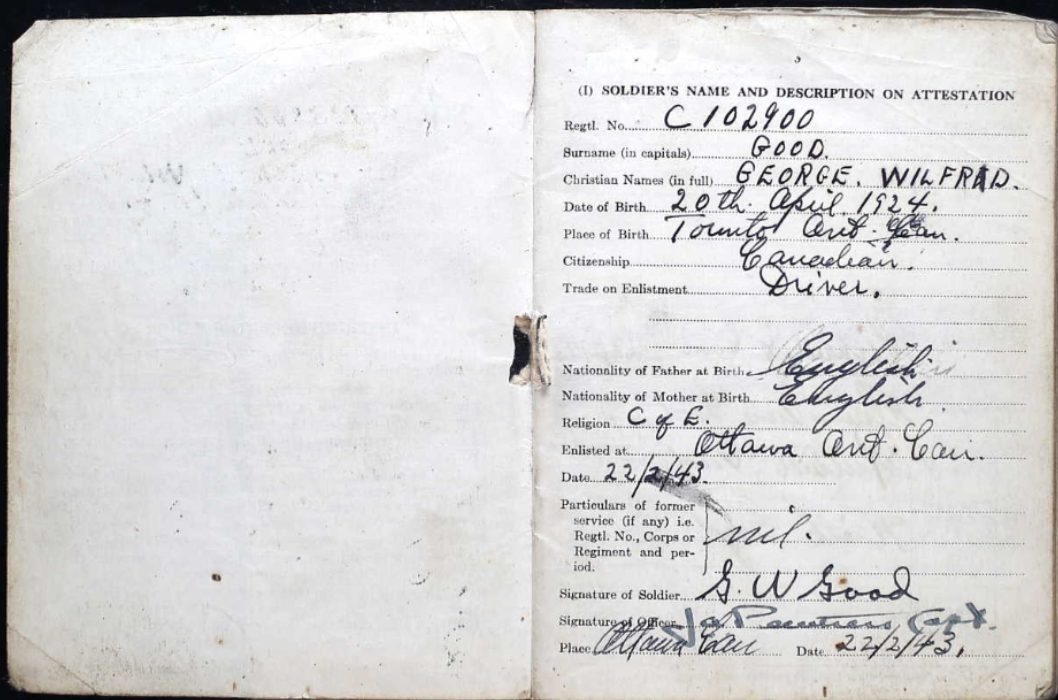 (I) SOLDIER'S NAME AND DESCRIPTION ON ATTESTATION
Regtl. No. C 102900
Surname (in capitals) GOOD.
Christian Names (in full) GEORGE. WILFRED.
Date of Birth 20th. April 1924.
Place of Birth Toronto Ont. Can.
Citizenship Canadian.
Trade on Enlistment Driver.
Nationality of Father at Birth English
Nationality of Mother at Birth English.
Religion C of E.
Enlisted at Ottawa Ont. Can.
Date 22/2/43.
Particulars of former
service (if any) i.e.
Regtl. No., Corps or nil.
Regiment and per-
iod.
Signature of Soldier G. W Good
Signature of Officer Capt.
Place Ottawa Can Date 22/2/43.